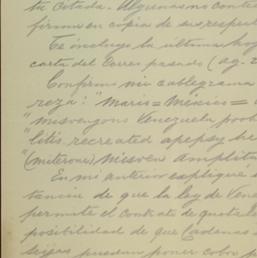 tu Cotada. Algunas no conte
firma en copia de sus respu
Te incluyo la última hoj
carta del Correo pasado (ag. 2
Confirmo mi cablegrama
reza: "Maris = México =
"misvengons Venezuela poob
"litis recreated apepsy he
"(miterones) Missvens amplitu
En mi anterior expliqué
tancia de que la ley de Vene
permite el contrato de
posibilidad de que Cardenas
puedan poner cobro